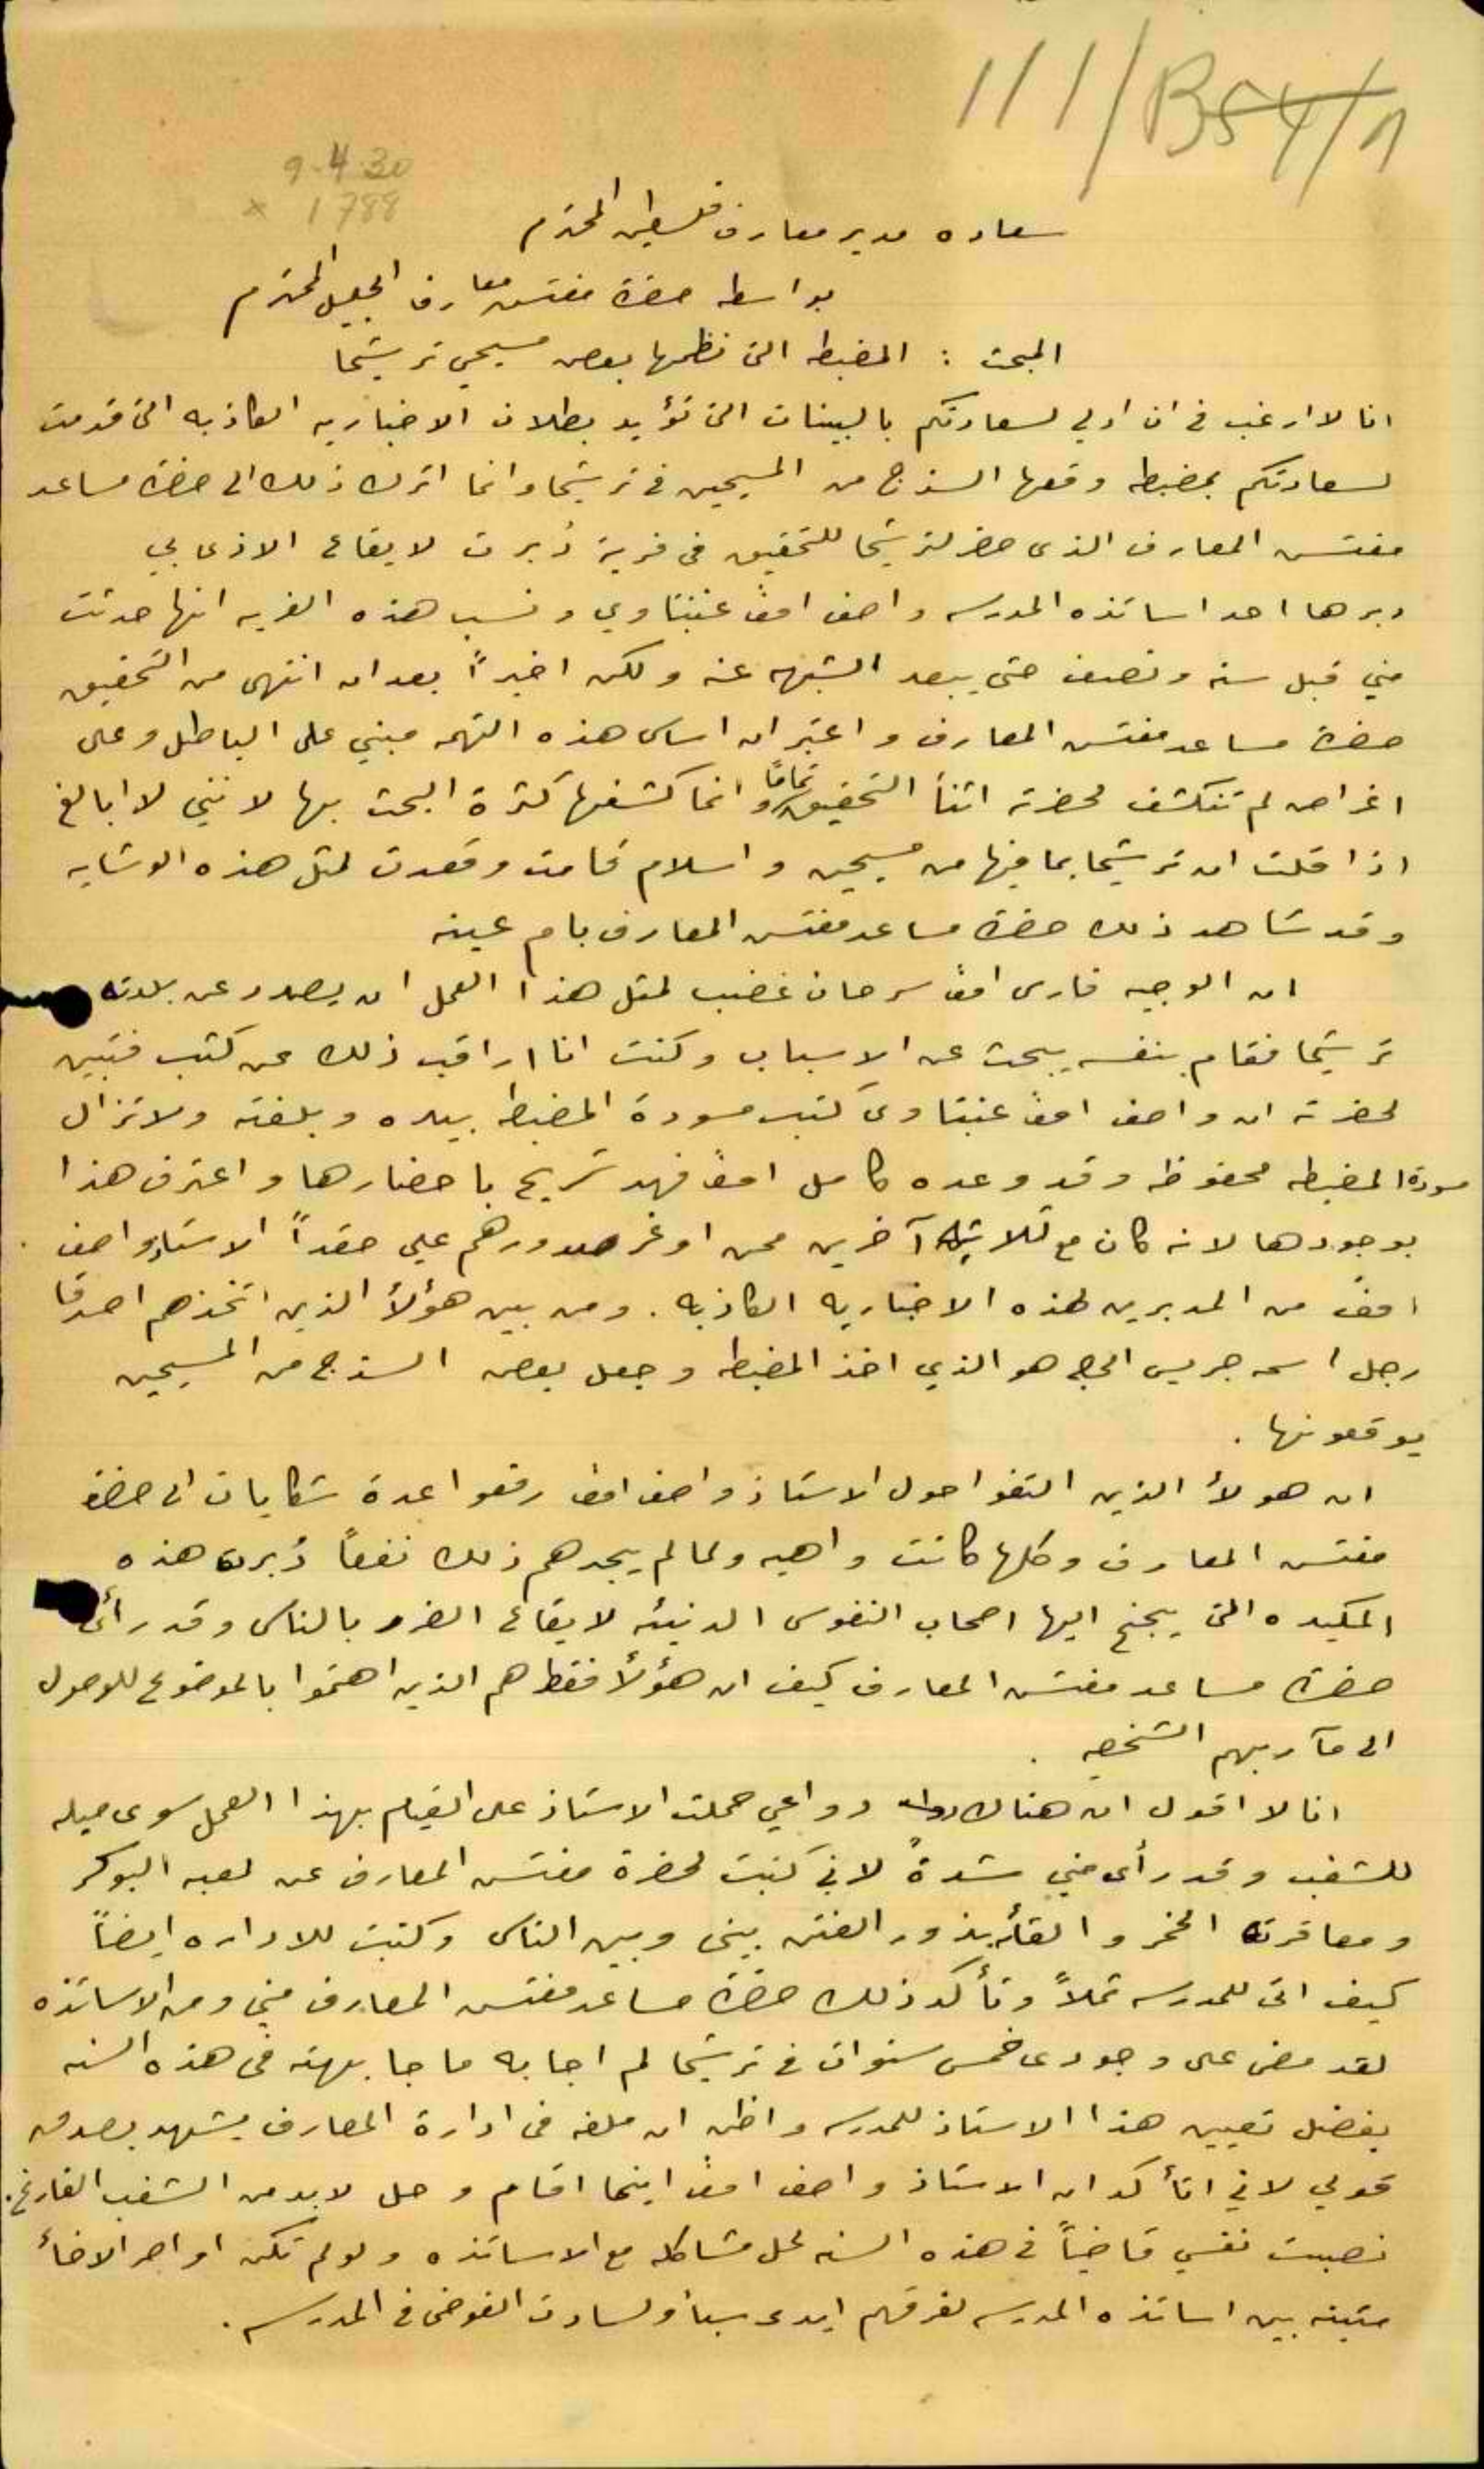 111/B54/1
9.4.30
x 1788
سعاده مدير معارف فلسطين المحترم
بواسطه حضرة مفتش معارف الجليل المحترم
المبحث : المضبطه التى نظمها بعض مسيحي ترشيحا
انا لا ارغب في ان ادلي لسعادتكم بالبينات التى تؤيد بطلان الاخباريه الكاذبه التى قدمت
لسعادتكم بمضبطه وقعها السذج من المسيحين في ترشيحا وانما اترك ذلك الى حضرة مساعد
مفتش المعارف الذى حضر لترشيحا للتحقيق في فرية دُبرت لايقاع الاذى بي
دبرها احد اساتذه المدرسه واصف افن عنبتاوي ونسب هذه الفريه انها حدثت
مني قبل سنه ونصف حتى يبعد الشبهه عنه ولكن اخيراً بعد ان انتهى من التحقيق
حضرة مساعد مفتش المعارف واعتبر ان اساس هذه التهمه مبني على الباطل وعلى
اغراض لم تنكشف لحضرته اثنأ التحقيق تماماً وانما كشفها كثرة البحث بها لانني لا ابالغ
اذا قلت ان ترشيحا بما فيها من مسيحين واسلام قامت وقعدت لمثل هذه الوشايه
وقد شاهد ذلك حضرة مساعد مفتش المعارف بام عينه
ان الوجيه فارس افن سرحان غضب لمثل هذا العمل ان يصدر عن بلدته
ترشيحا فقام بنفسه يبحث عن الاسباب وكنت انا اراقب ذلك عن كثب فتبين
لحضرته ان واصف افن عنبتاوى كتب مسودة المضبطه بيده وبلغته ولا تزال
مسودة المضبطه محفوظه وقد وعده كامل افن فهد شريح باحضارها واعترف هذا
بوجودها لانه كان مع ثلاثة آخرين ممن اوغر صدورهم علي حقداً الاستاذ واصف
افن من المدبرين لهذه الاخباريه الكاذبه . ومن بين هؤلأ الذين اتخذهم اصدقا
رجل اسمه جريس هو الذي اخذ المضبطه وجعل بعض السذج من المسيحين
يوقعونها .
ان هولأ الذين التفوا حول الاستاذ واصف افن رفعوا عدة شكايات الى حضرة
مفتش المعارف وكلها كانت واهيه ولما لم يجدهم ذلك نفعاً دُبرت هذه
المكيده التى يجنح اليها اصحاب النفوس الدنيئه لايقاع الضرر بالناس وقد رأى
حضرة مساعد مفتش المعارف كيف ان هؤلأ فقط هم الذين اهتموا بالموضوع للوصول
الى مآربهم الشخصيه .
انا لا اقول ان هناك دواعي حملت الاستاذ على القيام بهذا العمل سوى ميله
للشغب وقد رأى مني شدةً لاني كتبت لحضرة مفتش المعارف عن لعبه البوكر
ومعاقرته الخمر والقأ بذور الفتن بيني وبين الناس وكتبت للاداره ايضاً
كيف اتى للمدرسه ثملاً وتأكد ذلك حضرة مساعد مفتش المعارف مني ومن الاساتذه
لقد مضى على وجودى خمس سنوات في ترشيحا لم اجابه ما جابهته في هذه السنه
بفضل تعيين هذا الاستاذ للمدرسه واظن ان ملفه في ادارة المعارف يشهد بصدق
قولي لاني اتأكد ان الاستاذ واصف افن اينما اقام وحل لا بد من الشغب الفارغ .
نصبت نفسي قاضياً في هذه السنه لحل مشاكله مع الاساتذه ولو لم تكن اواصر الاخأ
متينه بين اساتذه المدرسه لفرقهم ايدى سبأ ولسادت الفوضى في المدرسه .